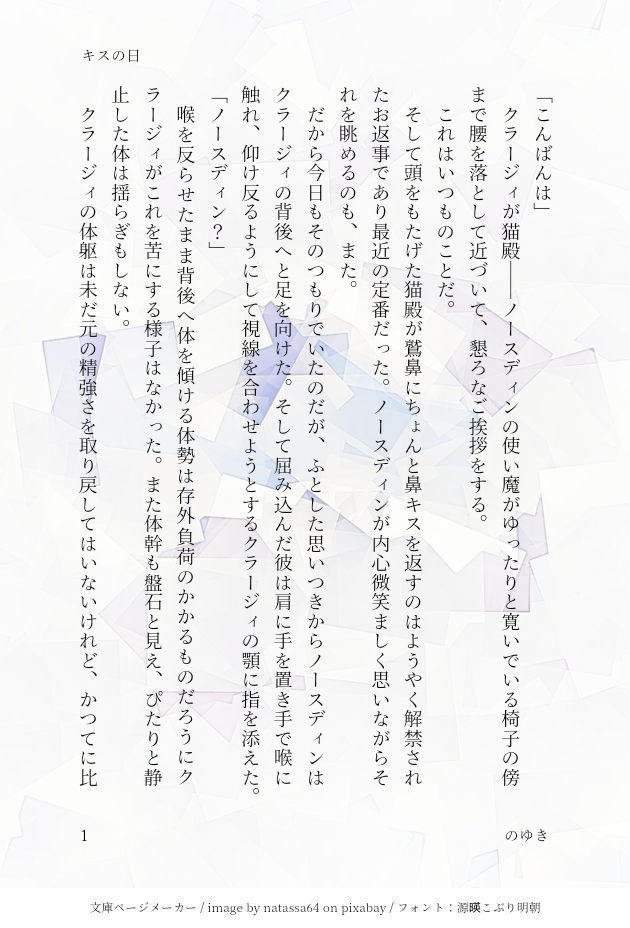 キスの日
「こんばんは」
　クラージィが猫殿――ノースディンの使い魔がゆったりと寛いでいる椅子の傍
まで腰を落として近づいて、懇ろなご挨拶をする。
　これはいつものことだ。
　そして頭をもたげた猫殿が鷲鼻にちょんと鼻キスを返すのはようやく解禁され
たお返事であり最近の定番だった。ノースディンが内心微笑ましく思いながらそ
れを眺めるのも、また。
　だから今日もそのつもりでいたのだが、ふとした思いつきからノースディンは
クラージィの背後へと足を向けた。そして屈み込んだ彼は肩に手を置き手で喉に
触れ、仰け反るようにして視線を合わせようとするクラージィの顎に指を添えた。
「ノースディン？」
　喉を反らせたまま背後へ体を傾ける体勢は存外負荷のかかるものだろうにク
ラージィがこれを苦にする様子はなかった。また体幹も盤石と見え、ぴたりと静
止した体は揺らぎもしない。
　クラージィの体躯は未だ元の精強さを取り戻してはいないけれど、かつてに比
1
のゆき
文庫ページメーカー / image by natassa64 on pixabay / フォント：源暎こぶり明朝